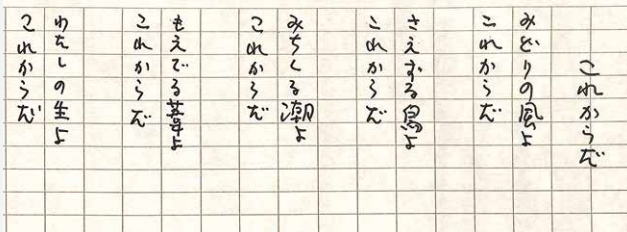 これからだ
みどりの風よ
これからだ
さえずる鳥よ
これからだ
みちくる潮よ
これからだ
もえでる芽よ
これからだ
わたしの生よ
これからだ